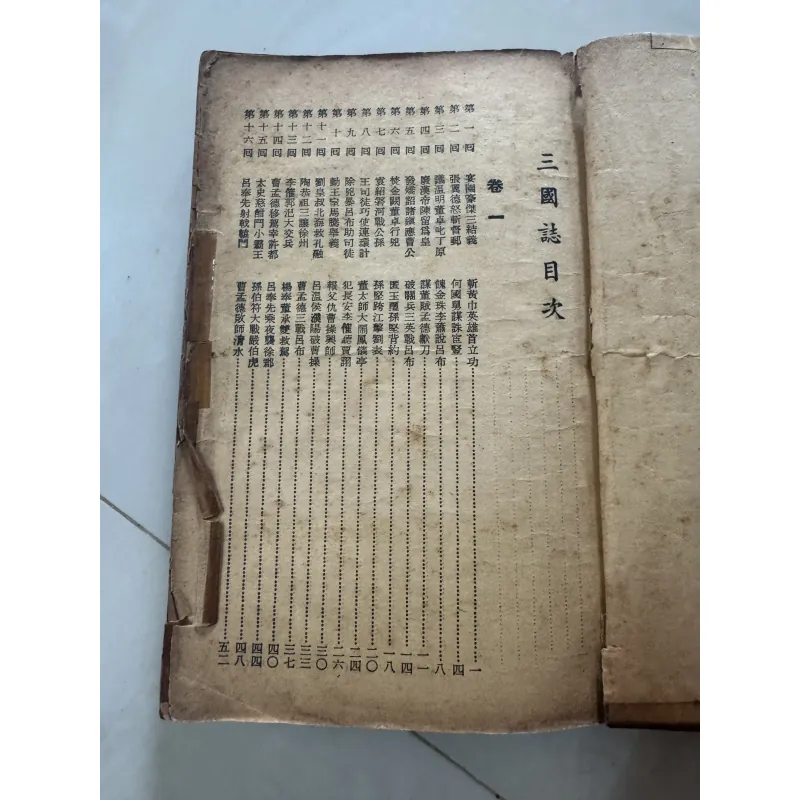 三國誌目次
卷一
第一回 宴園豪傑三結義 斬黃巾英雄首立功 一
第二回 張翼德怒斬督郵 何國舅謀誅宦豎 四
第三回 議溫明董卓叱丁原 餽金珠李肅說呂布 八
第四回 廢漢帝陳留爲皇 謀董賊孟德獻刀 一一
第五回 發矯詔諸鎭應曹公 破關兵三英戰呂布 一四
第六回 焚金闕董卓行兇 匿玉璽孫堅背約 一八
第七回 袁紹磐河戰公孫 孫堅跨江擊劉表 二〇
第八回 王司徒巧使連環計 董太師大鬧鳳儀亭 二四
第九回 除兇暴呂布助司徒 犯長安李傕聽賈詡 二六
第十回 勤王室馬騰舉義 報父仇曹操興師 三〇
第十一回 劉皇叔北海救孔融 呂溫侯濮陽破曹操 三三
第十二回 陶恭祖三讓徐州 曹孟德三戰呂布 三七
第十三回 李傕郭汜大交兵 楊奉董承雙救駕 四〇
第十四回 曹孟德移駕幸許都 呂奉先乘夜襲徐郡 四四
第十五回 太史慈酣鬥小霸王 孫伯符大戰嚴伯虎 四八
第十六回 呂奉先射戟轅門 曹孟德敗師淯水 五二